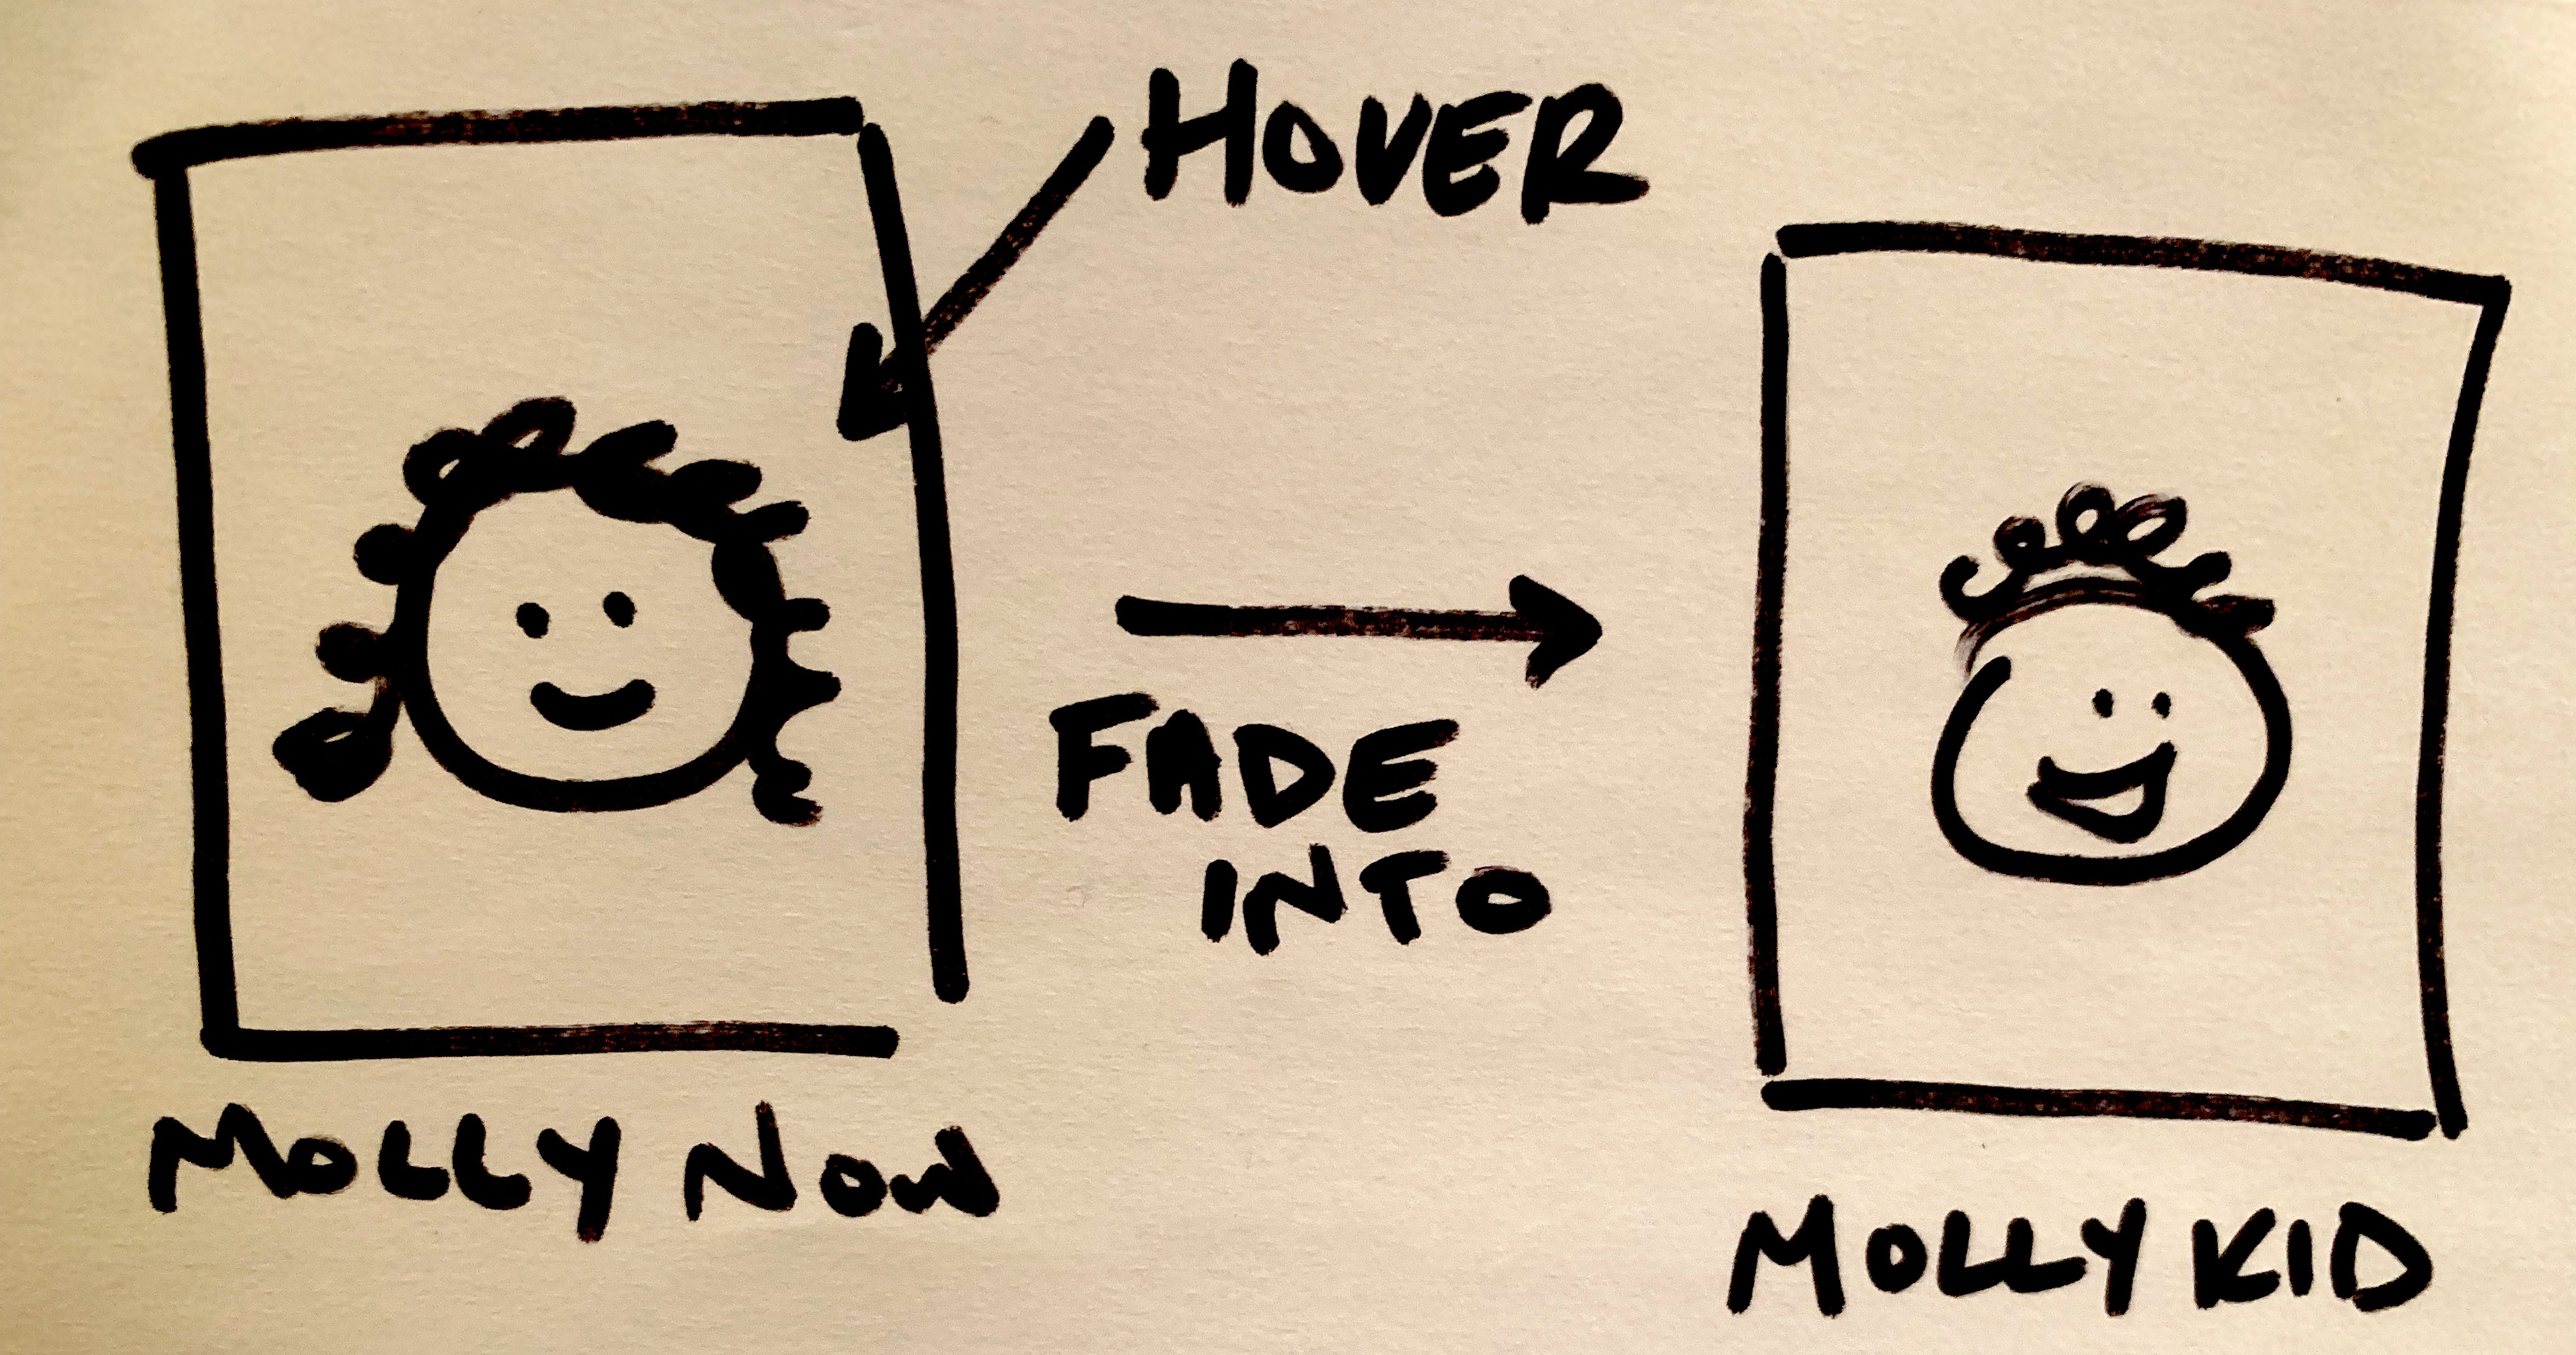 HOVER
FADE
INTO
MOLLY NOW
MOLLY KID